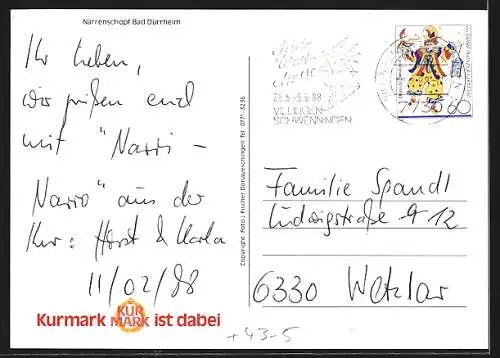 Narrenschopf Bad Dürrheim
Ihr Lieben,
wir grüßen euch
mit "Narri -
Narro" aus der
Kur: Horst & Karla
11/02/88
Kurmark KUR MARK ist dabei
Copyright Foto: Fischer Donaueschingen Tel. 0771-3236
28.5.-5.6.88
VILLINGEN-
SCHWENNINGEN
7730
60
Familie Spandl
Ludwigstraße 12
6330 Wetzlar
+43-5